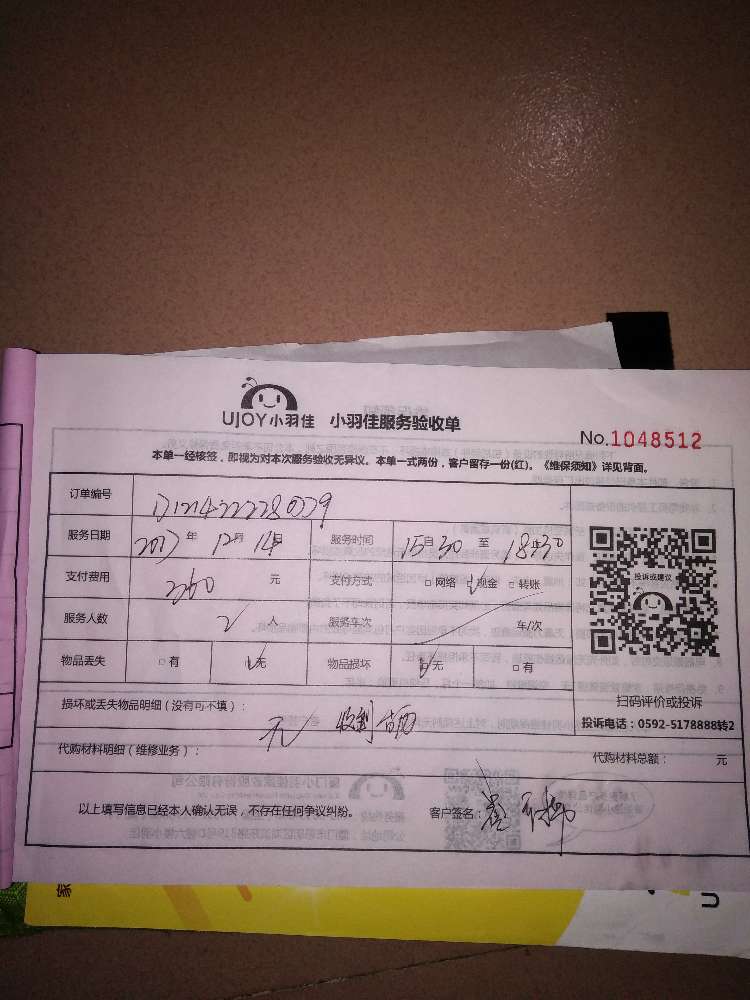 UJOY小羽佳 小羽佳服务验收单
No.1048512
本单一经核签，即视为对本次服务验收无异议。本单一式两份，客户留存一份(红)。《维保须知》详见背面。
订单编号
服务日期 2017年12月14日 服务时间 15:30 至 18:30
支付费用 260 元 支付方式 □网络 ☑现金 □转账
服务人数 2 人 服务车次 车/次
物品丢失 □有 ☑无 物品损坏 ☑无 □有
投诉或建议
扫码评价或投诉
投诉电话：0592-5178888转2
损坏或丢失物品明细（没有可不填）：
无 收到
代购材料明细（维修业务）：
代购材料总额： 元
以上填写信息已经本人确认无误，不存在任何争议纠纷。 客户签名：